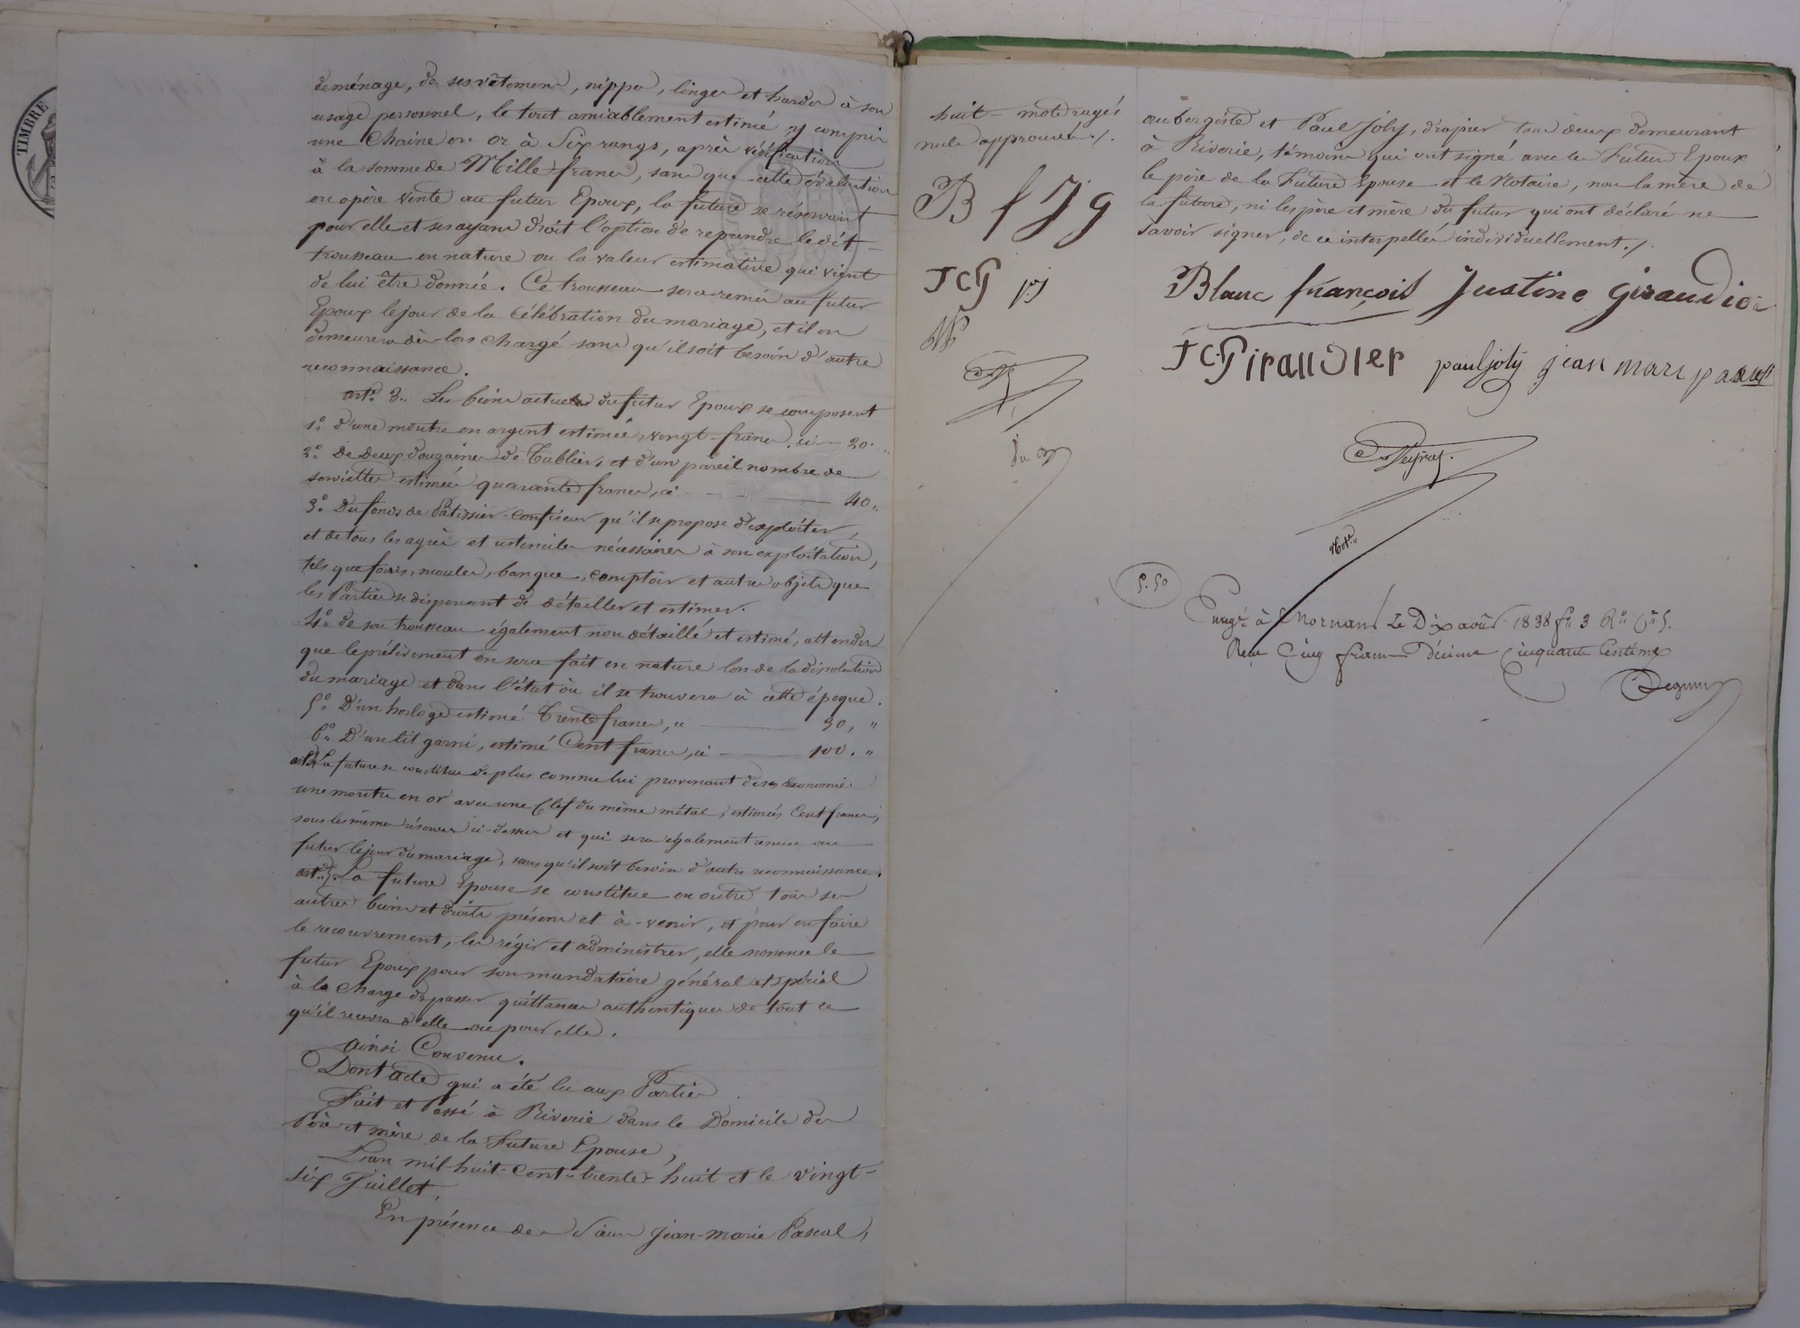 TIMBRE
de ménage, de ses vêtemens, nippes, linges et hardes à son
usage personnel, le tout amiablement estimé y compris
une Chaine en or à Six rangs, après vérification
à la somme de Mille francs, sans que cette évaluation
en opère vente au futur Epoux, la future se réservant
pour elle et ses ayans droit l'option de reprendre le dit
trousseau en nature ou la valeur estimative qui vient
de lui être donnée. Ce trousseau sera remis au futur
Epoux le jour de la Célébration du mariage, et il en
demeurera dès lors chargé sans qu'il soit besoin d'autre
reconnaissance.
art. 3. Les biens actuels du futur Epoux se composent
1° d'une montre en argent estimée vingt-francs, ci — 20.
2° De Deux douzaines de Tabliers, et d'un pareil nombre de
serviettes estimées quarante francs, ci — 40.
3° Du fonds de Pâtissier-Confiseur qu'il se propose d'exploiter,
et de tous les agrès et ustenciles nécessaires à son exploitation,
tels que fours, moules, banque, comptoir et autres objets que
les Parties se dispensent de détailler et estimer.
4° de son trousseau également non détaillé et estimé, attendu
que le prélèvement en sera fait en nature lors de la dissolution
du mariage et dans l'état où il se trouvera à cette époque.
5° D'un horloge estimé Trente francs, ci — 30, "
6° D'un lit garni, estimé Cent francs, ci — 100. "
La future se constitue de plus comme lui provenant de ses économies
une montre en or avec une Clef du même métal, estimées Cent francs,
sous les mêmes réserves ci-dessus et qui sera également remise au
futur le jour du mariage, sans qu'il soit besoin d'autre reconnaissance.
art. 5. La future Epouse se constitue en outre tous ses
autres biens et droits présens et à-venir, et pour en faire
le recouvrement, les régir et administrer, elle nomme le
futur Epoux pour son mandataire général et spécial
à la charge de passer quittances authentiques de tout ce
qu'il recevra d'elle ou pour elle.
ainsi Convenu.
Dont acte qui a été lu aux Parties
Fait et Passé à Riverie dans le Domicile des
Père et mère de la Future Epouse,
L'an mil huit-cent-trente-huit et le vingt-
six Juillet,
En présence de Sieurs Jean-Marie Pascal,
huit mots rayés
nuls approuvés ./.
B f J g
J C G P J
aubergiste et Paul Joly, drapier tous deux demeurant
à Riverie, témoins qui ont signé avec les Futurs Epoux
le père de la Future Epouse et le Notaire, non la mère de
la future, ni les père et mère du futur qui ont déclaré ne
savoir signer, de ce interpellés individuellement ./.
Blanc françois Justine giraudier
J C Giraudier paul joly jean marc pascal
Peyras
Not.
5.50
Enregé à Mornant Le Dix août 1838 f° 3 R° C° 5.
Reçu Cinq francs Décime Cinquante Centimes